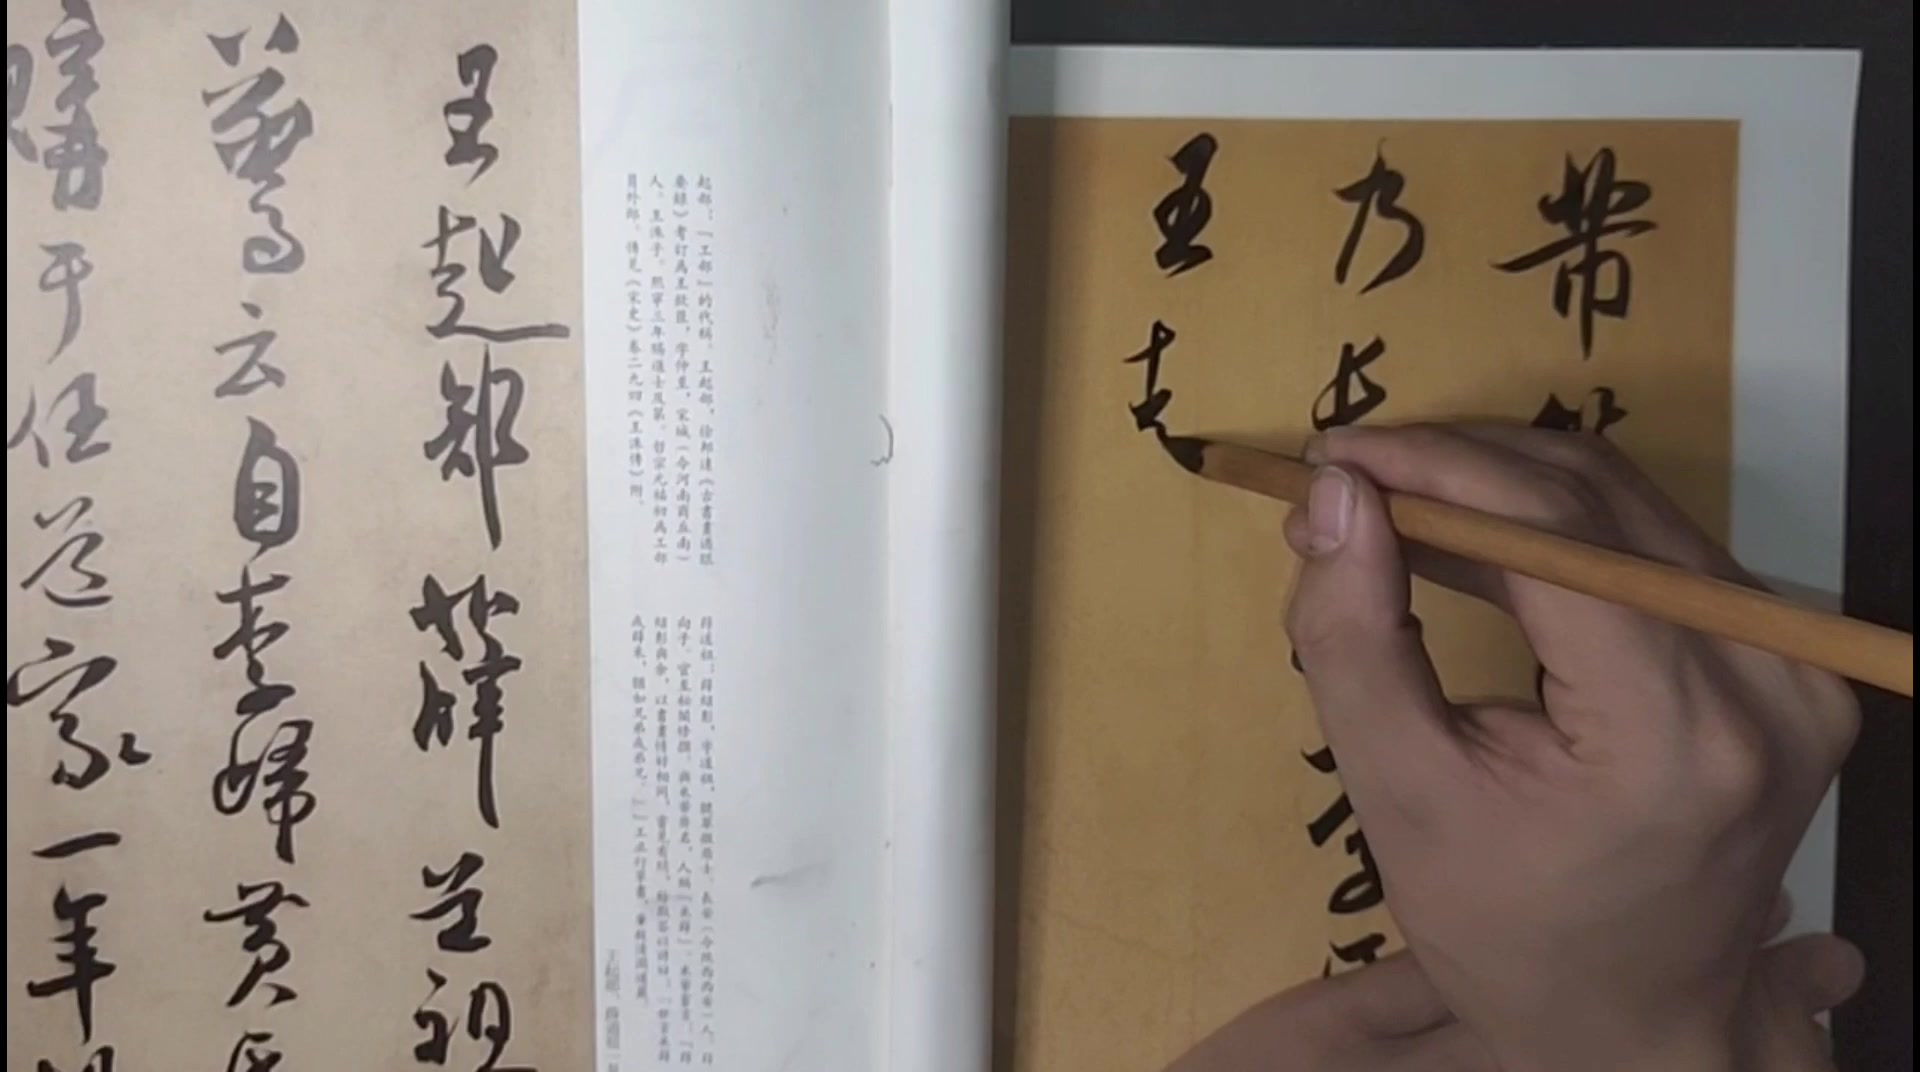 芾
乃長
王
起部：「工部」的代稱。王起部，徐邦達《古書畫過眼
要錄》考訂爲王欽臣，字仲至，宋城（今河南商丘南）
人。王洙子。熙寧三年賜進士及第。哲宗元祐初爲工部
員外郎。傳見《宋史》卷二九四《王洙傳》附。
薛道祖：薛紹彭，字道祖，號翠微居士，長安（今陝西西安）人。薛
向子。官至秘閣修撰。與米芾齊名，人稱「米薛」。米芾嘗言：「薛
紹彭與余，以書畫情好相同，嘗見有問，余戲答以詩曰：『世言米薛
或薛米，猶如兄弟或弟兄。』」工正行草書，筆致清潤遒麗。
王起部、薛道祖一
王起部薛道祖
云自李婦黃氏
購于任道家一年